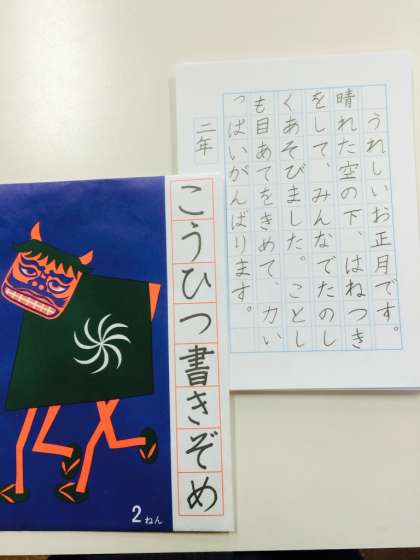 うれしいお正月です。
晴れた空の下、はねつき
をして、みんなでたのし
くあそびました。ことし
も目あてをきめて、力い
っぱいがんばります。
二年
こうひつ書きぞめ
2ねん